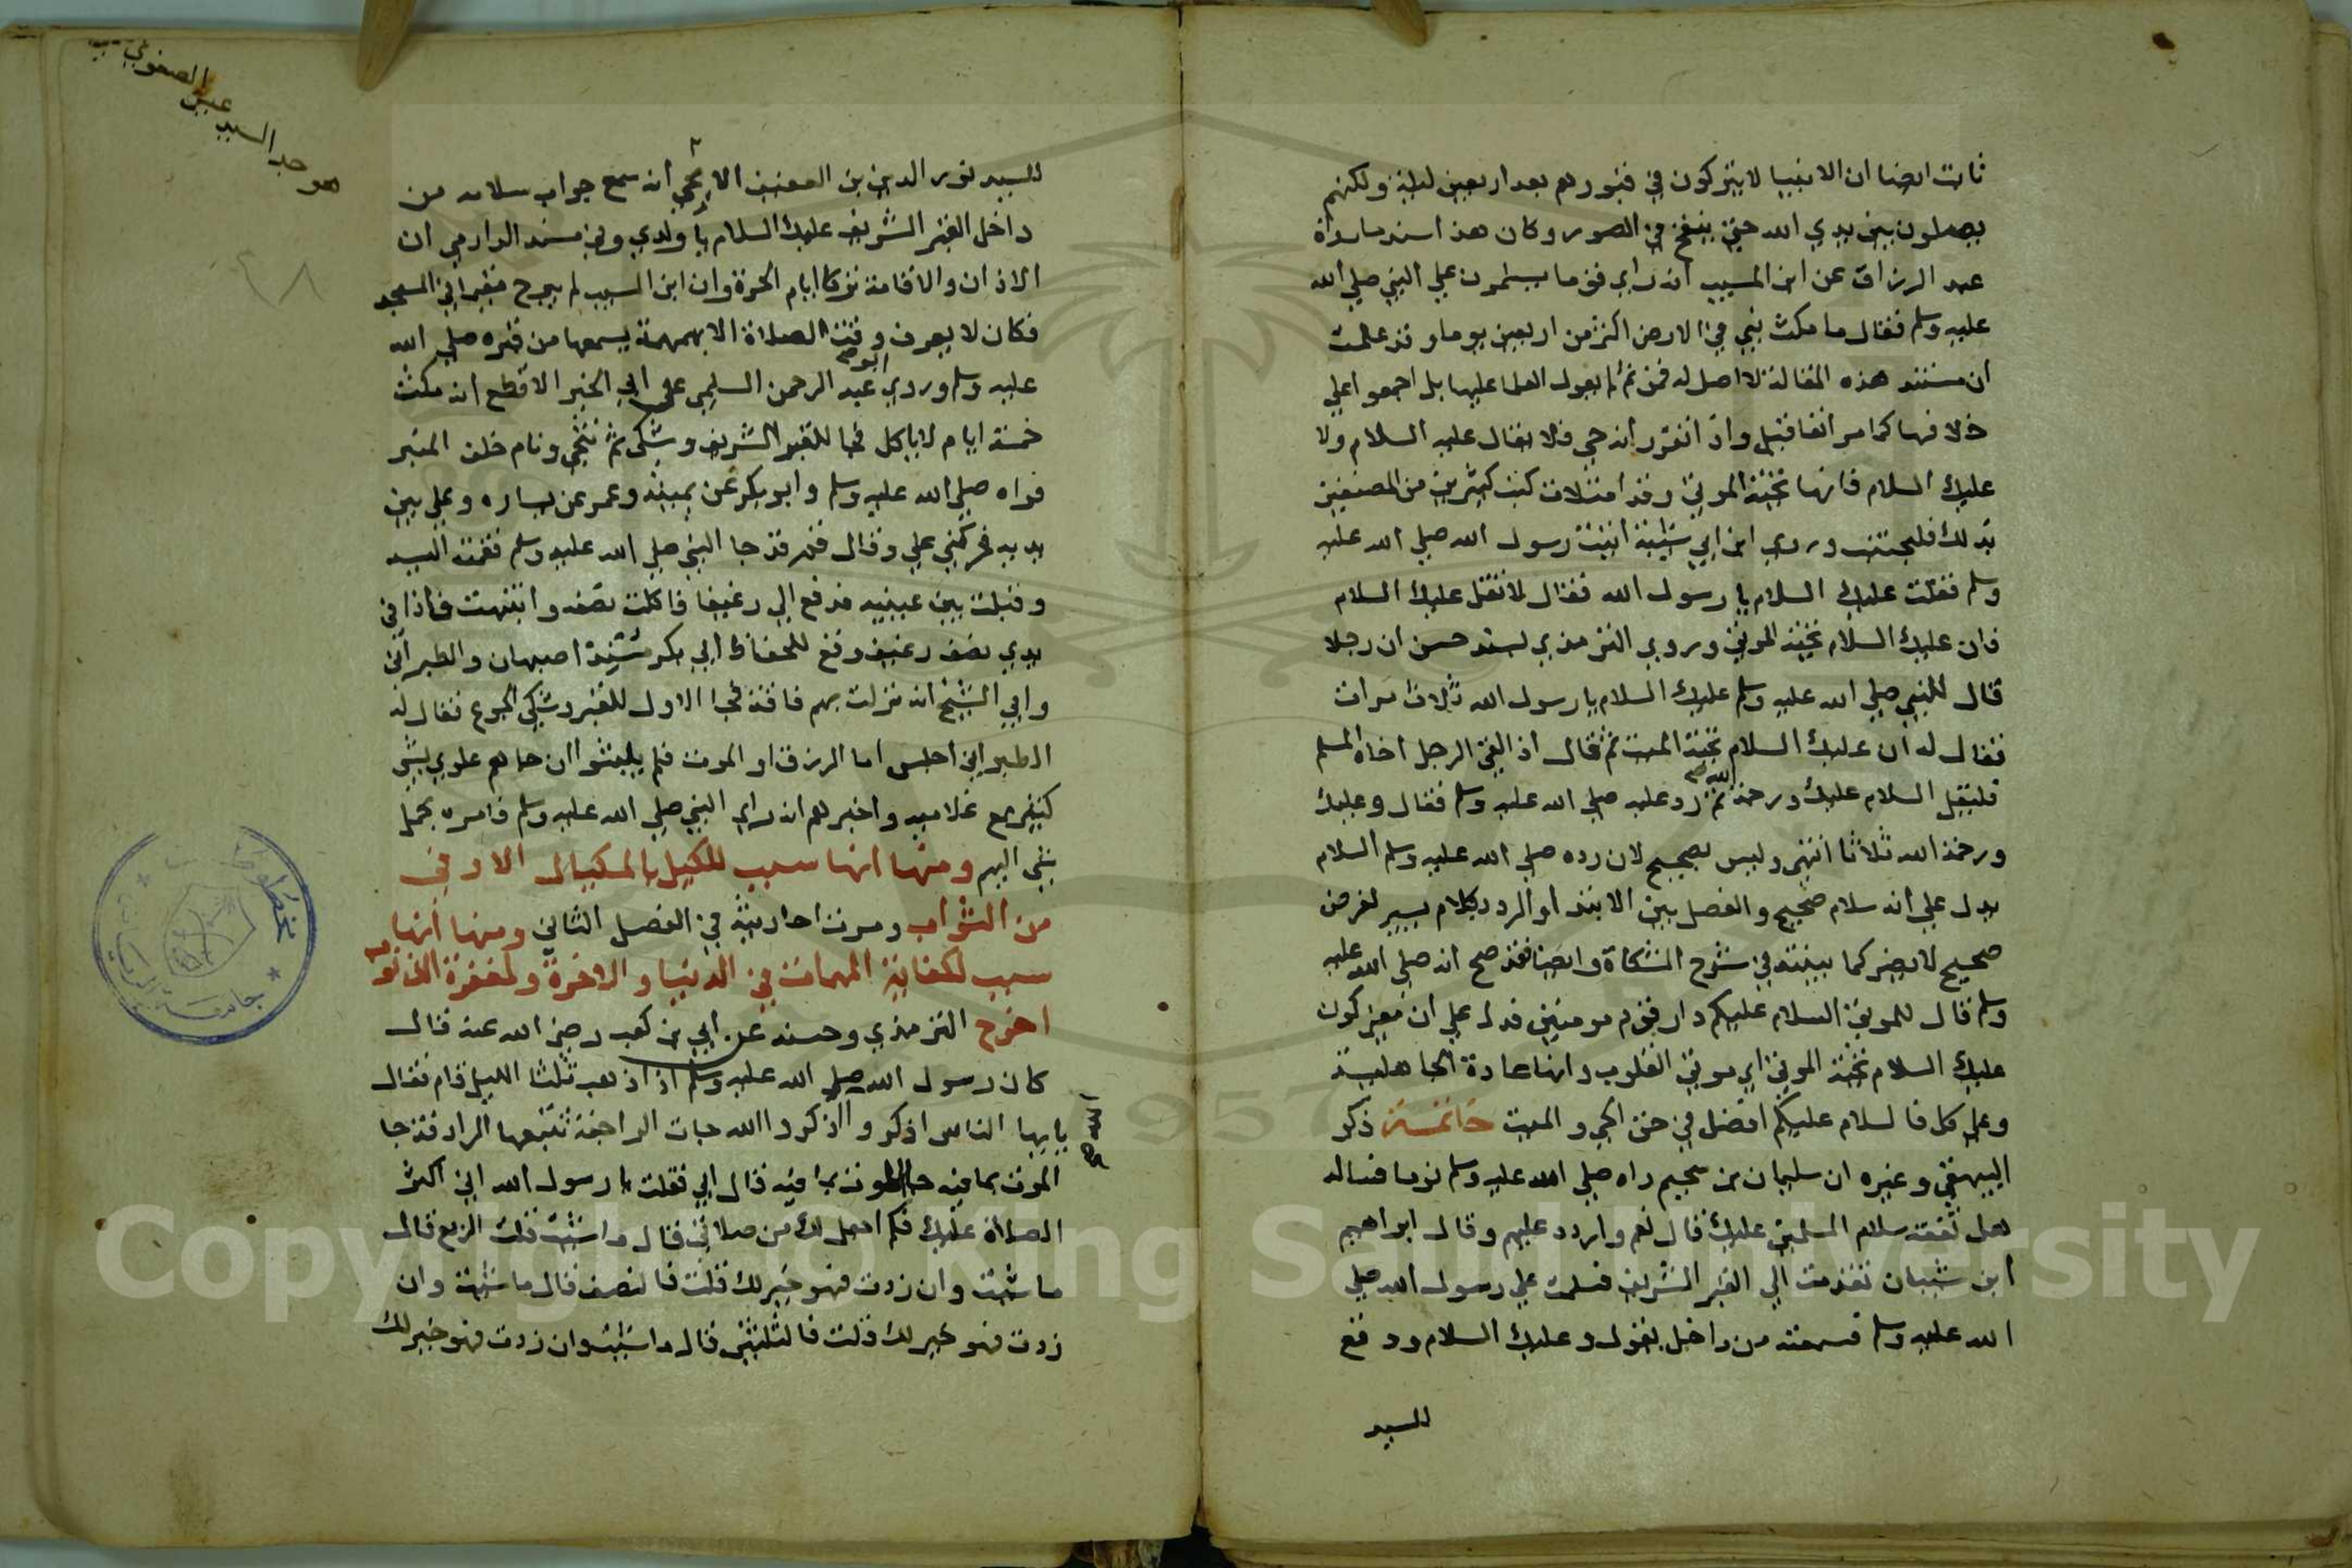 ثابت ايضا ان الانبيا لا يتركون في قبورهم بعد اربعين ليلة ولكنهم
يصلون بين يدي الله حتى ينفخ في الصور وكان هذا سند ما رواه
عبد الرزاق عن ابن المسيب انه راي قوما يسلمون علي النبي صلي الله
عليه وسلم فقال ما مكث نبي في الارض اكثر من اربعين يوما وقد علمت
ان مستند هذه المقالة لا اصل له فمن ثم لم يعول العلما عليها بل اجمعوا علي
خلافها كما مر انفا قيل واذا تقرر انه حي فلا يقال عليه السلام ولا
عليك السلام فانها تحية الموتي وقد امتلات كتب كثيرين من المصنفين
بذلك فليجتنب وروي ابن ابي شيبة اتيت رسول الله صلي الله عليه
وسلم فقلت عليك السلام يا رسول الله فقال لا تقل عليك السلام
فان عليك السلام تحية الموتي وروي الترمذي بسند حسن ان رجلا
قال للنبي صلي الله عليه وسلم عليك السلام يا رسول الله ثلاث مرات
فقال له ان عليك السلام تحية الميت ثم قال اذا لقي الرجل اخاه المسلم
فليقل السلام عليك ورحمة الله ثم رد عليه صلي الله عليه وسلم فقال وعليك
ورحمة الله ثلاثا انتهى وليس بصحيح لان رده صلي الله عليه وسلم السلام
يدل علي انه سلام صحيح والفصل بين الابتدا والرد بكلام يسير لغرض
صحيح لا يضر كما بينته في شرح المشكاة وايضا فقد صح انه صلي الله عليه
وسلم قال للموتي السلام عليكم دار قوم مومنين فدل علي ان معنى كون
عليك السلام تحية الموتي اي موتي القلوب وانها عادة الجاهلية
وعلي كل فالسلام عليكم افضل في حق الحي والميت خاتمة ذكر
البيهقي وغيره ان سليمان بن سحيم راه صلي الله عليه وسلم نوما فساله
هل تفقه سلام المسلمين عليك قال نعم وارد عليهم وقال ابراهيم
ابن شيبان تقدمت الي القبر الشريف فسلمت علي رسول الله صلي
الله عليه وسلم فسمعته من داخل يقول وعليك السلام ووقع
للسيد
هو جد السيد عيسى الصفوي
للسيد نور الدين بن العفيف الايجي انه سمع جواب سلامه من
داخل القبر الشريف عليك السلام يا ولدي وفي مسند الدارمي ان
الاذان والاقامة تركا ايام الحرة وان ابن المسيب لم يبرح مقيما في المسجد
فكان لا يعرف وقت الصلاة الا بهمهمة يسمعها من قبره صلي الله
عليه وسلم وروي ابو عبد الرحمن السلمي عن ابي الخير الاقطع انه مكث
خمسة ايام لا ياكل فجا للقبر الشريف وشكى ثم تنحى ونام خلف المنبر
فراه صلي الله عليه وسلم وابو بكر عن يمينه وعمر عن يساره وعلي بين
يديه فحركني علي وقال قم قد جا النبي صلي الله عليه وسلم فقمت اليه
وقبلت بين عينيه فدفع الي رغيفا فاكلت نصفه وانتبهت فاذا في
يدي نصف رغيف ووقع للحفاظ ابي بكر مسند اصبهان والطبراني
وابي الشيخ انه نزلت بهم فاقة فجا الاول للقبر وشكى الجوع فقال له
الطبراني اجلس اما الرزق او الموت فلم يلبثوا ان جاهم علوي بشي
كثير مع غلاميه واخبرهم انه راي النبي صلي الله عليه وسلم فامره بحمل
شي اليهم ومنها انها سبب للكيل بالمكيال الاوفى
من الثواب ومرت احاديثه في الفصل الثاني ومنها انها
سبب لكفاية المهمات في الدنيا والاخرة ولمغفرة الذنوب
اخرج الترمذي وحسنه عن ابي بن كعب رضي الله عنه قال
كان رسول الله صلي الله عليه وسلم اذا ذهب ثلثا الليل قام فقال
يايها الناس اذكروا الله اذكروا الله جات الراجفة تتبعها الرادفة جا
الموت بما فيه جا الموت بما فيه قال ابي فقلت يا رسول الله اني اكثر
الصلاة عليك فكم اجعل لك من صلاتي قال ما شئت قلت الربع قال
ما شئت وان زدت فهو خير لك قلت فالنصف قال ما شئت وان
زدت فهو خير لك قلت فالثلثين قال ما شئت وان زدت فهو خير لك
Copyright © King Saud University
1957